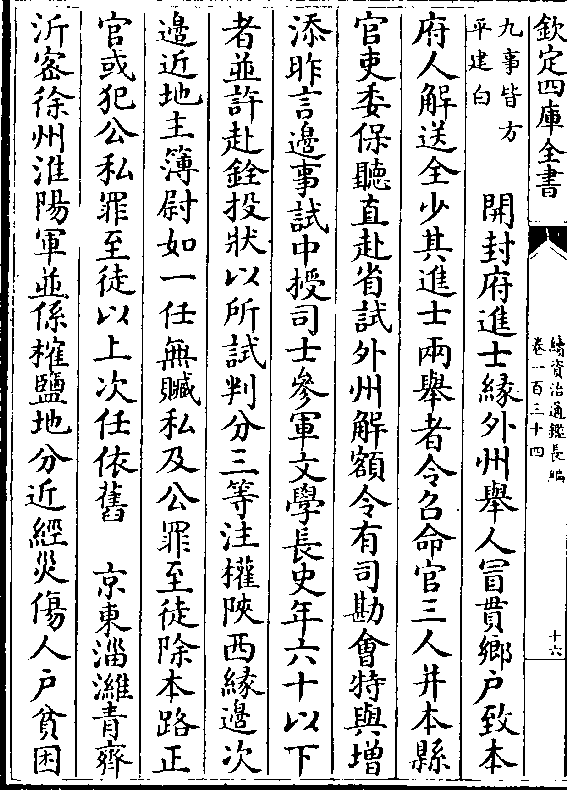 欽定四庫全書
續資治通鑑長編
卷一百三十四
十六
九事皆方
平建白
開封府進士緣外州舉人冒貫鄉户致本
府人解送全少其進士兩舉者令召命官三人并本縣
官吏委保聽直赴省試外州解額令有司勘會特與增
添昨言邊事試中授司士參軍文學長史年六十以下
者並許赴銓投狀以所試判分三等注權陜西緣邊次
邊近地主簿尉如一任無贓私及公罪至徒除本路正
官或犯公私罪至徒以上次任依舊　京東淄濰青齊
沂密徐州淮陽軍並係榷鹽地分近經災傷人户貧困